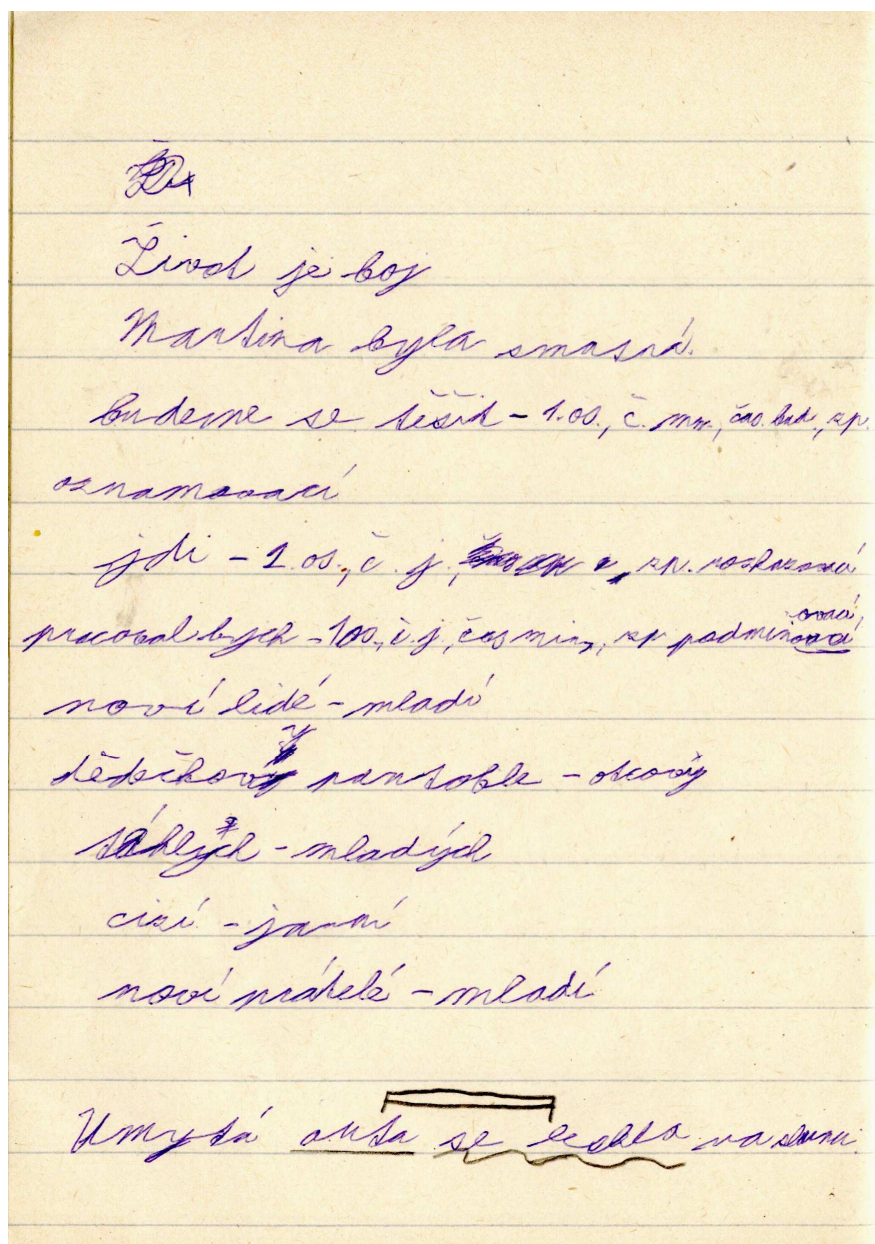 Život je boj
Martina byla smutná.
budeme se těšit - 1. os., č. mn., čas. bud., zp.
oznamovací
jdi - 2. os., č. j., zp. rozkazovací
pracoval bych - 1 os., č. j., čas min., zp podmiňovací,
noví lidé - mladí
dědečkovy pantofle - otcovy
táhlých - mladých
cizí - jarní
noví přátelé - mladí
Umytá auta se leskla na slunci.